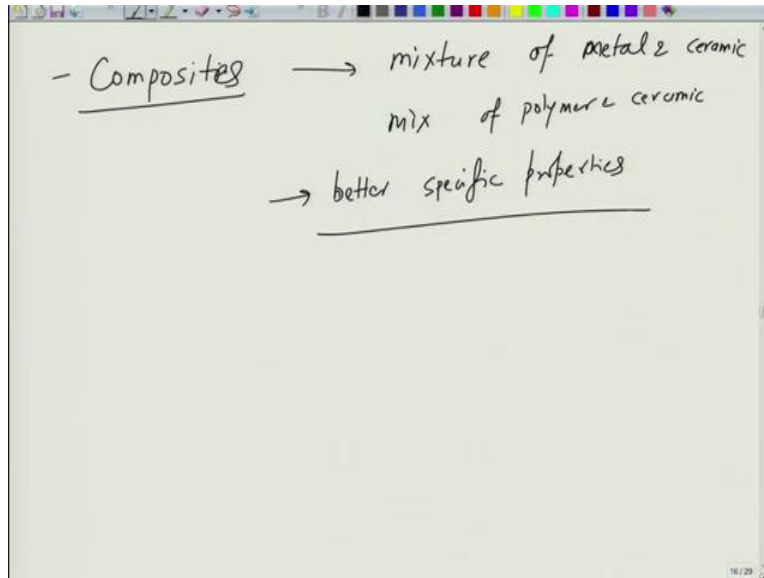 - Composites → mixture of metal & ceramic
mix of polymer & ceramic
→ better specific properties
16/29